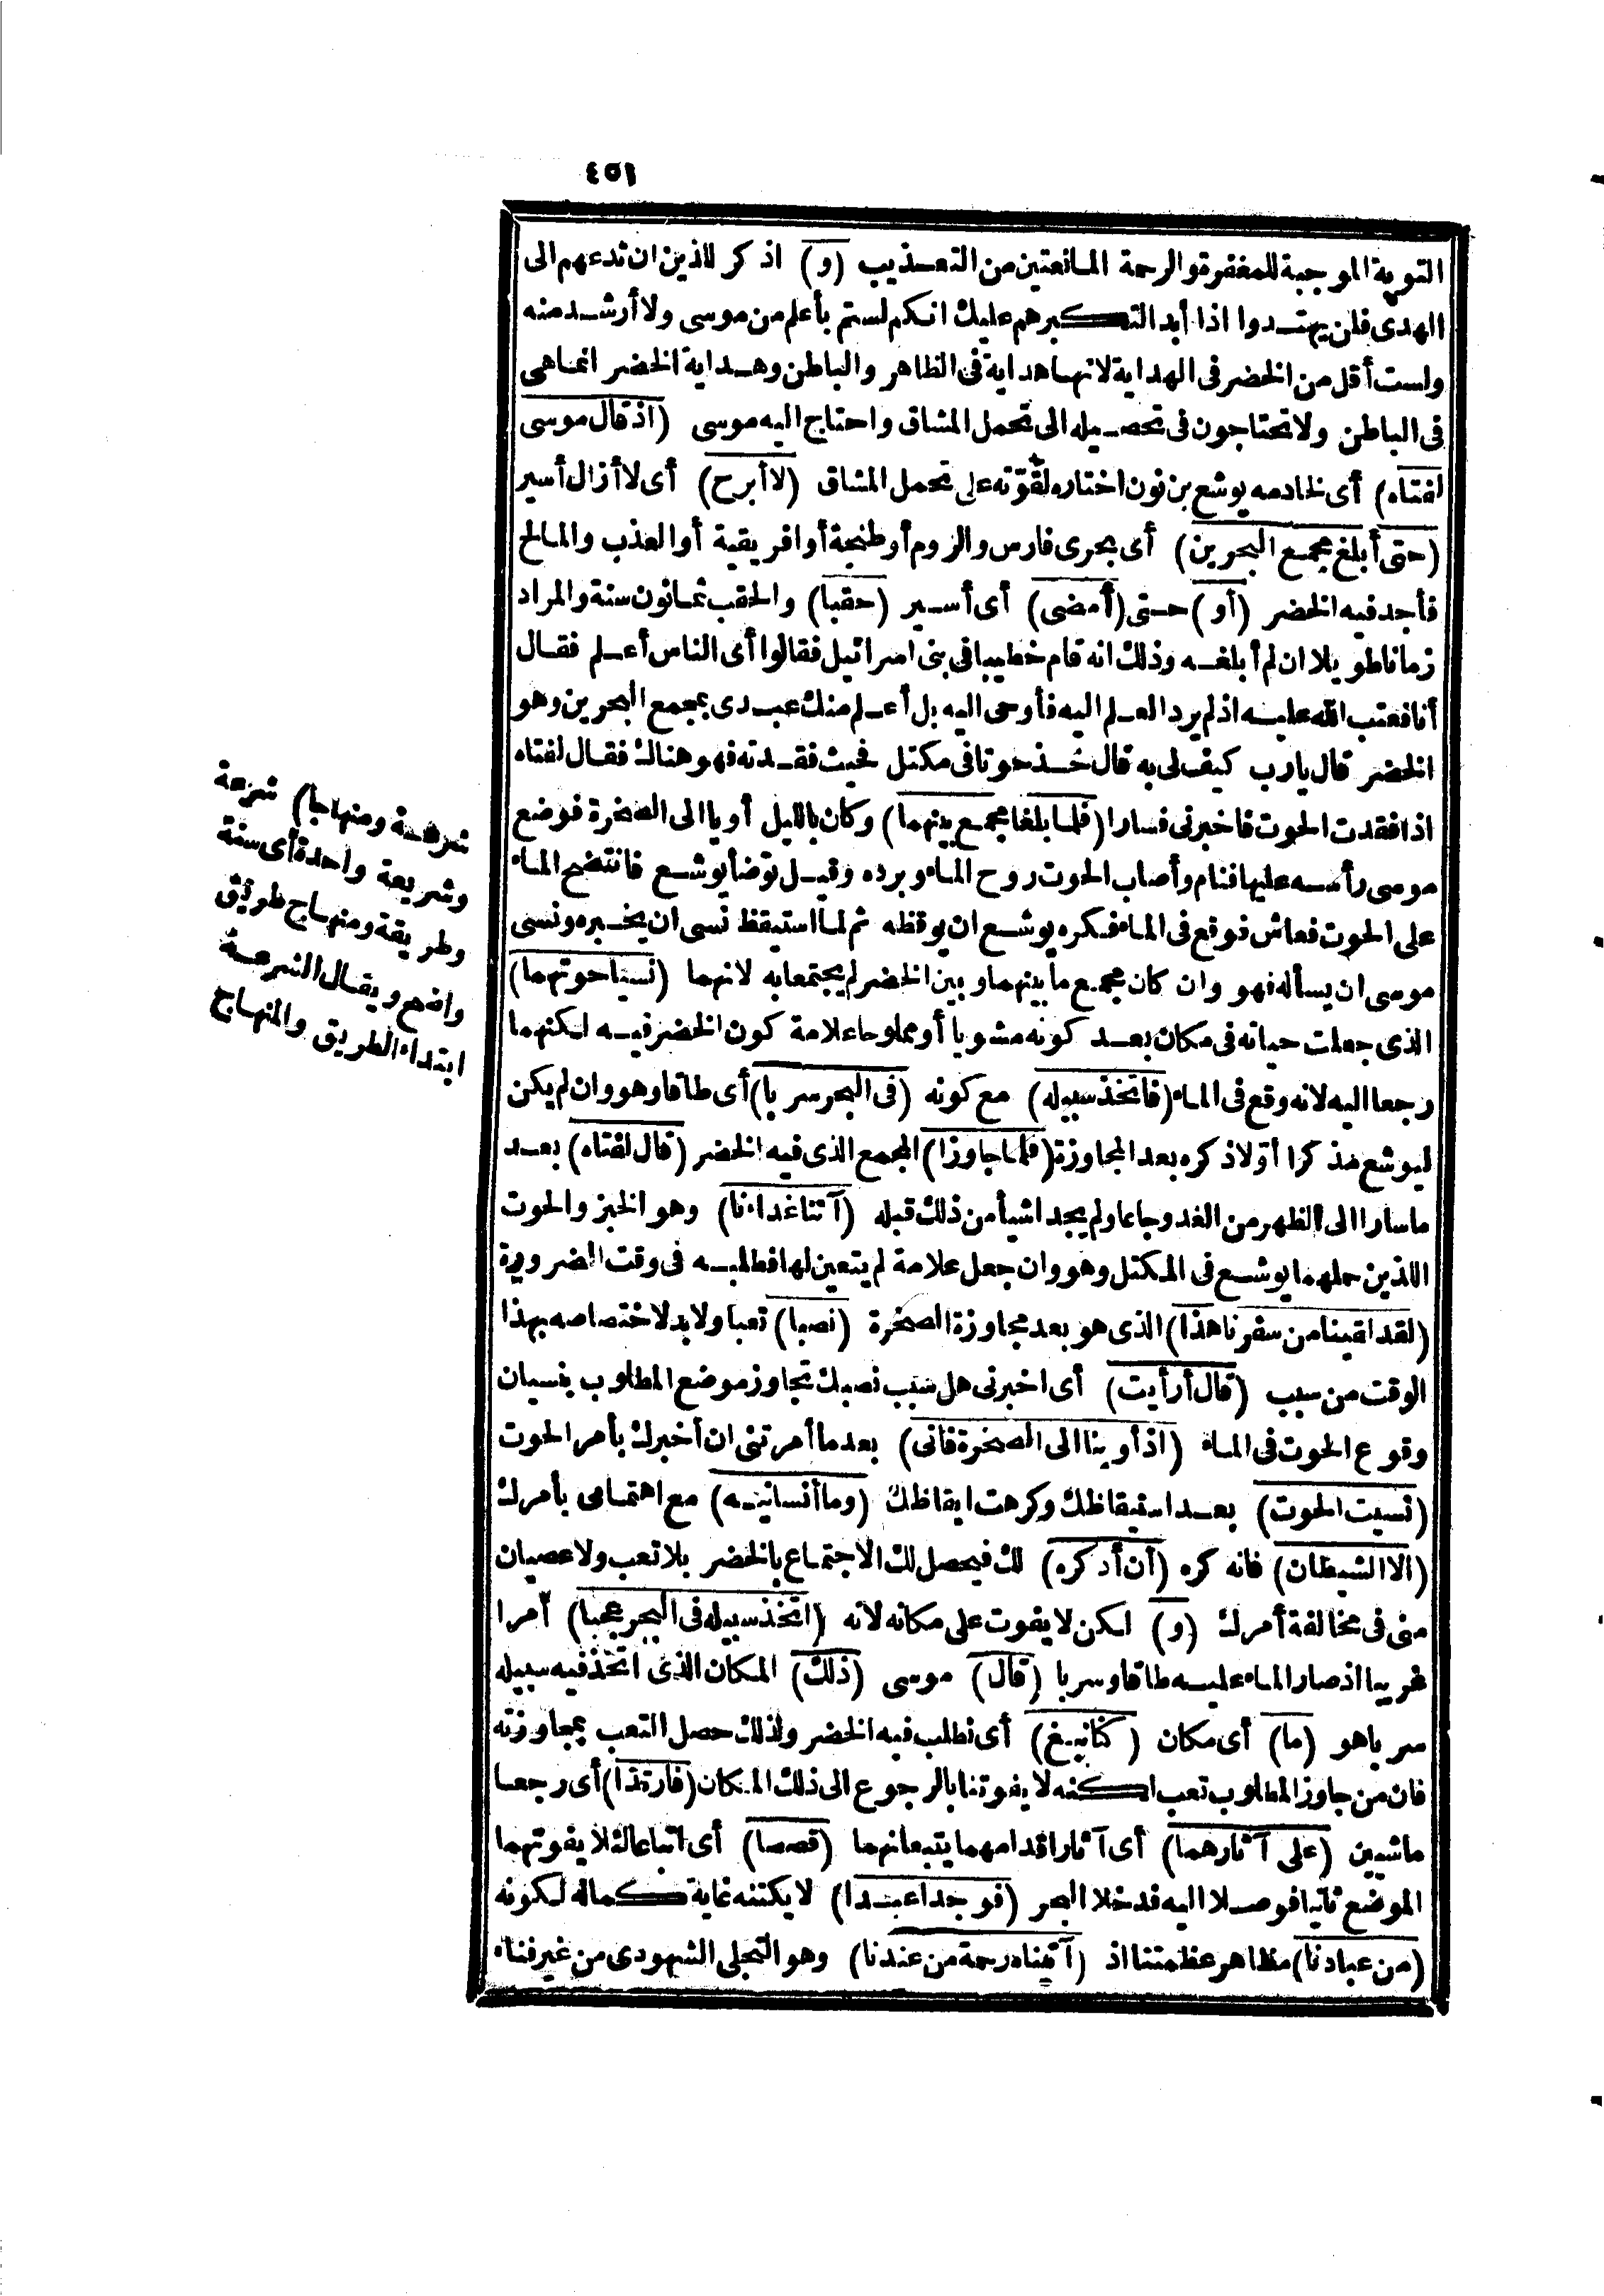 ٤٥١
التوبة الموجبة للمغفرة والرحمة المانعتين من التعذيب (و) اذكر للذين ان تدعهم الى
الهدى فلن يهتدوا اذا أبدا لتكبرهم عليك انكم لستم بأعلم من موسى ولا أرشد منه
ولست أقل من الخضر فى الهداية لانها هداية فى الظاهر والباطن وهداية الخضر انما هى
فى الباطن ولا تحتاجون فى تحصيله الى تحمل المشاق واحتاج اليه موسى (اذ قال موسى
لفتاه) أى لخادمه يوشع بن نون اختاره لقوّته على تحمل المشاق (لا أبرح) أى لا أزال أسير
(حتى أبلغ مجمع البحرين) أى بحرى فارس والروم أو طنجة أو افريقية أو العذب والمالح
فأجد فيه الخضر (أو) حتى (أمضى) أى أسير (حقبا) والحقب ثمانون سنة والمراد
زمانا طويلا ان لم أبلغه وذلك انه قام خطيبا فى بنى اسرائيل فقالوا أى الناس أعلم فقال
أنا فعتب الله عليه اذ لم يرد العلم اليه فأوحى اليه بل أعلم منك عبدى بمجمع البحرين وهو
الخضر قال يارب كيف لى به قال خذ حوتا فى مكتل فحيث فقدته فهو هناك فقال لفتاه
اذا فقدت الحوت فاخبرنى فسارا (فلما بلغا مجمع بينهما) وكان بالليل أويا الى الصخرة فوضع
موسى رأسه عليها فنام وأصاب الحوت روح الماء وبرده وقيل توضأ يوشع فانتضح الماء
على الحوت فعاش فوقع فى الماء فكره يوشع ان يوقظه ثم لما استيقظ نسى ان يخبره ونسى
موسى ان يسأله فهو وان كان مجمع ما بينهما وبين الخضر لم يجتمعا به لانهما (نسيا حوتهما)
الذى جعلت حياته فى مكان بعد كونه مشويا أو مملوحا علامة كون الخضر فيه لكنهما
رجعا اليه لانه وقع فى الماء (فاتخذ سبيله) مع كونه (فى البحر سربا) أى طاقا وهو وان لم يكن
ليوشع مذكرا أوّلا ذكره بعد المجاوزة (فلما جاوزا) المجمع الذى فيه الخضر (قال لفتاه) بعد
ما سارا الى الظهر من الغد وجاعا ولم يجدا شيأ من ذلك قبله (آتنا غداءنا) وهو الخبز والحوت
اللذين حملهما يوشع فى المكتل وهو وان جعل علامة لم يتعين لها فطلبه فى وقت الضرورة
(لقد لقينا من سفرنا هذا) الذى هو بعد مجاوزة الصخرة (نصبا) تعبا ولا بد لاختصاصه بهذا
الوقت من سبب (قال أرأيت) أى اخبرنى هل سبب نصبك تجاوز موضع المطلوب بنسيان
وقوع الحوت فى الماء (اذ أوينا الى الصخرة فانى) بعد ما أمرتنى ان أخبرك بأمر الحوت
(نسيت الحوت) بعد استيقاظك وكرهت ايقاظك (وما أنسانيه) مع اهتمامى بأمرك
(الا الشيطان) فانه كره (أن أذكره) لك فيحصل لك الاجتماع بالخضر بلا تعب ولا عصيان
منى فى مخالفة أمرك (و) لكن لا يفوت على مكانه لانه (اتخذ سبيله فى البحر عجبا) أمرا
غريبا اذ صار الماء عليه طاقا وسربا (قال) موسى (ذلك) المكان الذى اتخذ فيه سبيله
سربا هو (ما) أى مكان (كنا نبغ) أى نطلب فيه الخضر ولذلك حصل التعب بمجاوزته
فان من جاوز المطلوب تعب لكنه لا يفوتنا بالرجوع الى ذلك المكان (فارتدا) أى رجعا
ماشيين (على آثارهما) أى آثار اقدامهما يتبعانهما (قصصا) أى اتباعا لئلا يفوتهما
الموضع ثانيا فوصلا اليه فدخلا البحر (فوجدا عبدا) لا يكتنه غاية كماله لكونه
(من عبادنا) مظاهر عظمتنا اذ (آتيناه رحمة من عندنا) وهو التجلى الشهودى من غير فناء
شرعة ومنهاجا) شرعة
وشريعة واحدة أى سنة
وطريقة ومنهاج طريق
واضح ويقال الشرعة
ابتداء الطريق والمنهاج